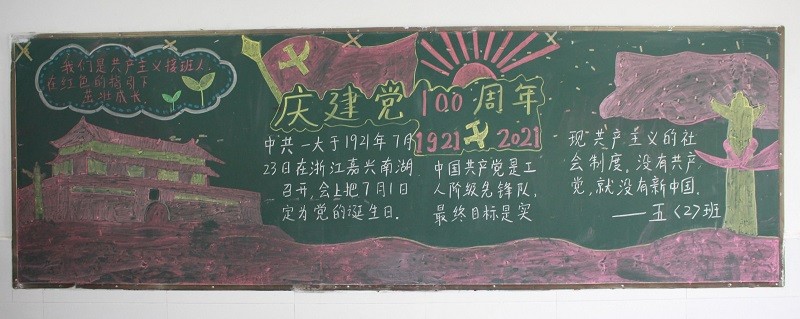 我们是共产主义接班人,
在红色的指引下
茁壮成长
庆建党100周年
1921 2021
中共一大于1921年7月
23日在浙江嘉兴南湖
召开,会上把7月1日
定为党的诞生日.
中国共产党是工
人阶级先锋队,
最终目标是实
现共产主义的社
会制度,没有共产
党,就没有新中国.
——五〈2〉班